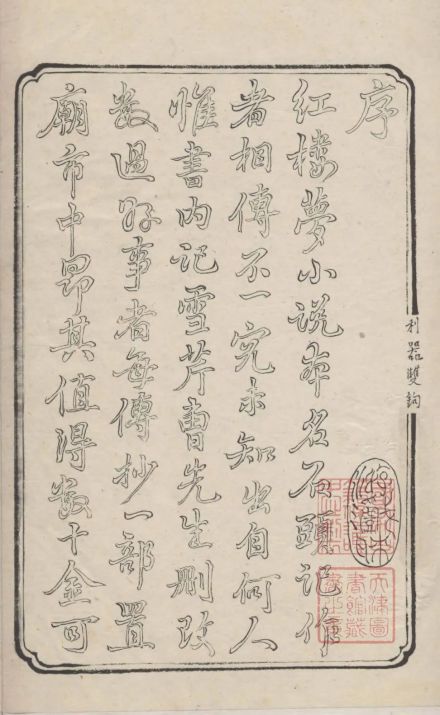 序
紅樓夢小說本名石頭記作
者相傳不一究未知出自何人
惟書內記雪芹曹先生刪改
數過好事者每傳抄一部置
廟市中昂其值得數十金可
利器雙鉤
天津圖
書館藏